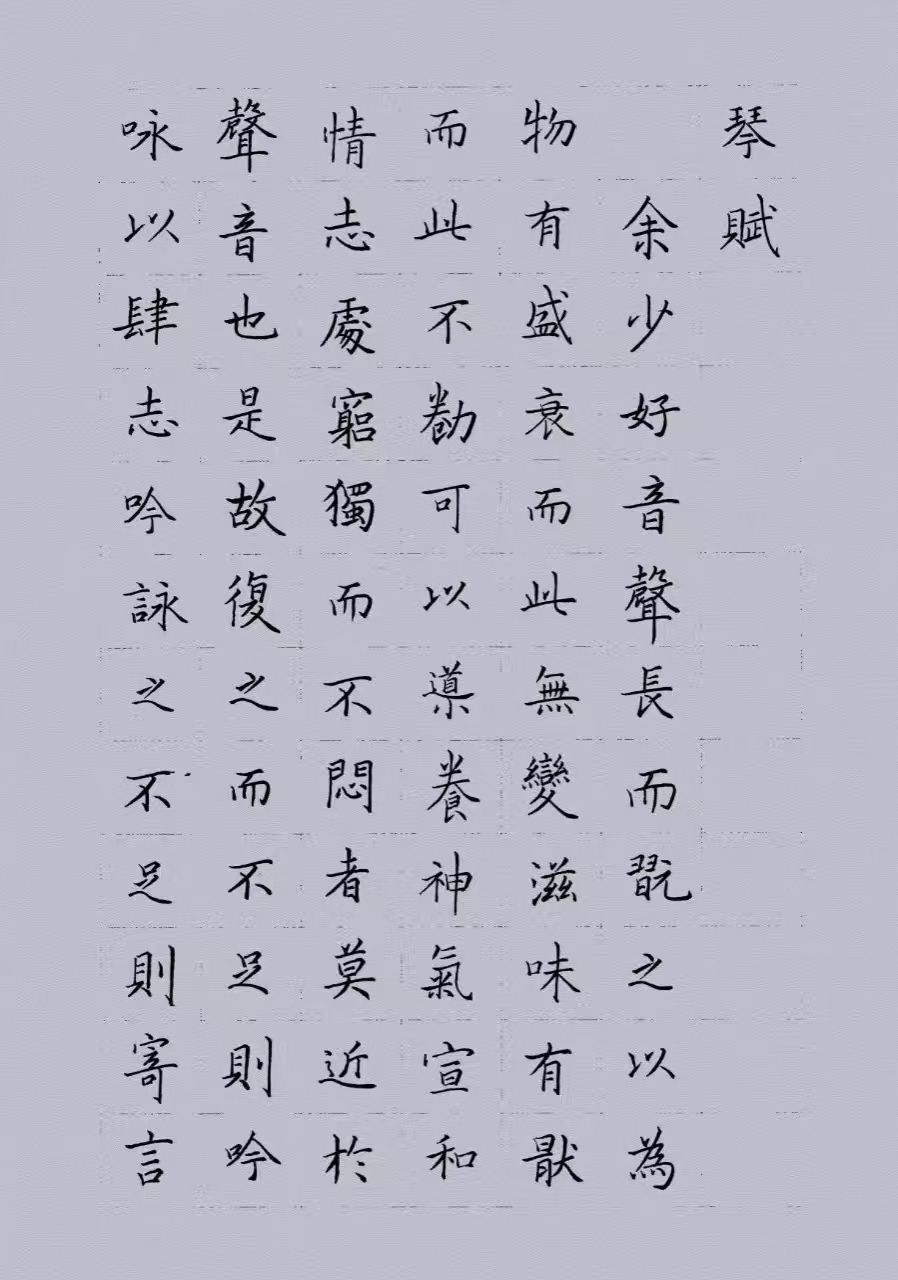 琴賦
余少好音聲長而翫之以為
物有盛衰而此無變滋味有猒
而此不勌可以導養神氣宣和
情志處窮獨而不悶者莫近於
聲音也是故復之而不足則吟
咏以肆志吟詠之不足則寄言